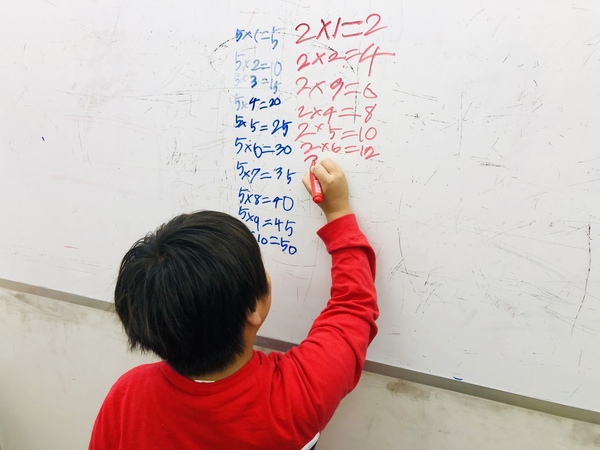 5×1=5
5×2=10
5×3=15
5×4=20
5×5=25
5×6=30
5×7=35
5×8=40
5×9=45
10=50
2×1=2
2×2=4
2×9=6
2×4=8
2×5=10
2×6=12
2